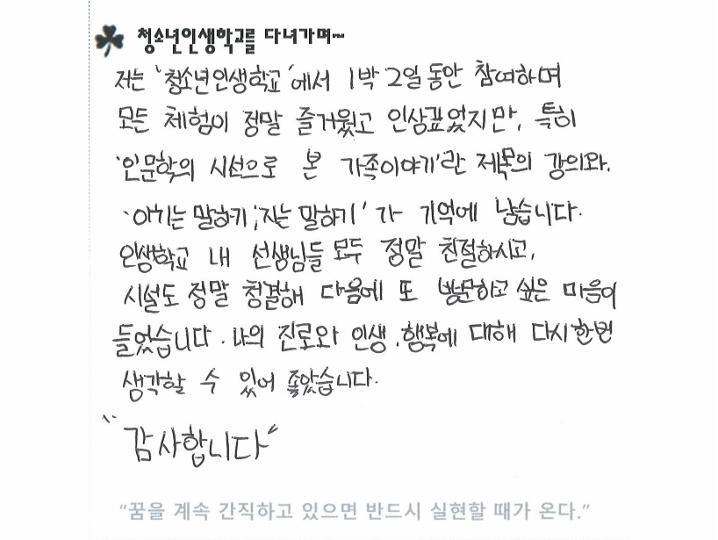 청소년인생학교를 다녀가며~
저는 '청소년인생학교'에서 1박 2일 동안 참여하며
모든 체험이 정말 즐거웠고 인상깊었지만, 특히
'인문학의 시선으로 본 가족이야기'란 제목의 강의와,
'이기는 말하기, 지는 말하기'가 기억에 남습니다.
인생학교 내 선생님들 모두 정말 친절하시고,
시설도 정말 청결해 다음에 또 방문하고 싶은 마음이
들었습니다. 나의 진로와 인생, 행복에 대해 다시한번
생각할 수 있어 좋았습니다.
"감사합니다"
"꿈을 계속 간직하고 있으면 반드시 실현할 때가 온다."